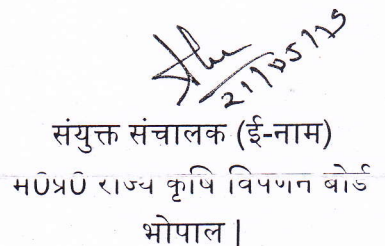 21/05/25
संयुक्त संचालक (ई-नाम)
म0प्र0 राज्य कृषि विपणन बोर्ड
भोपाल |